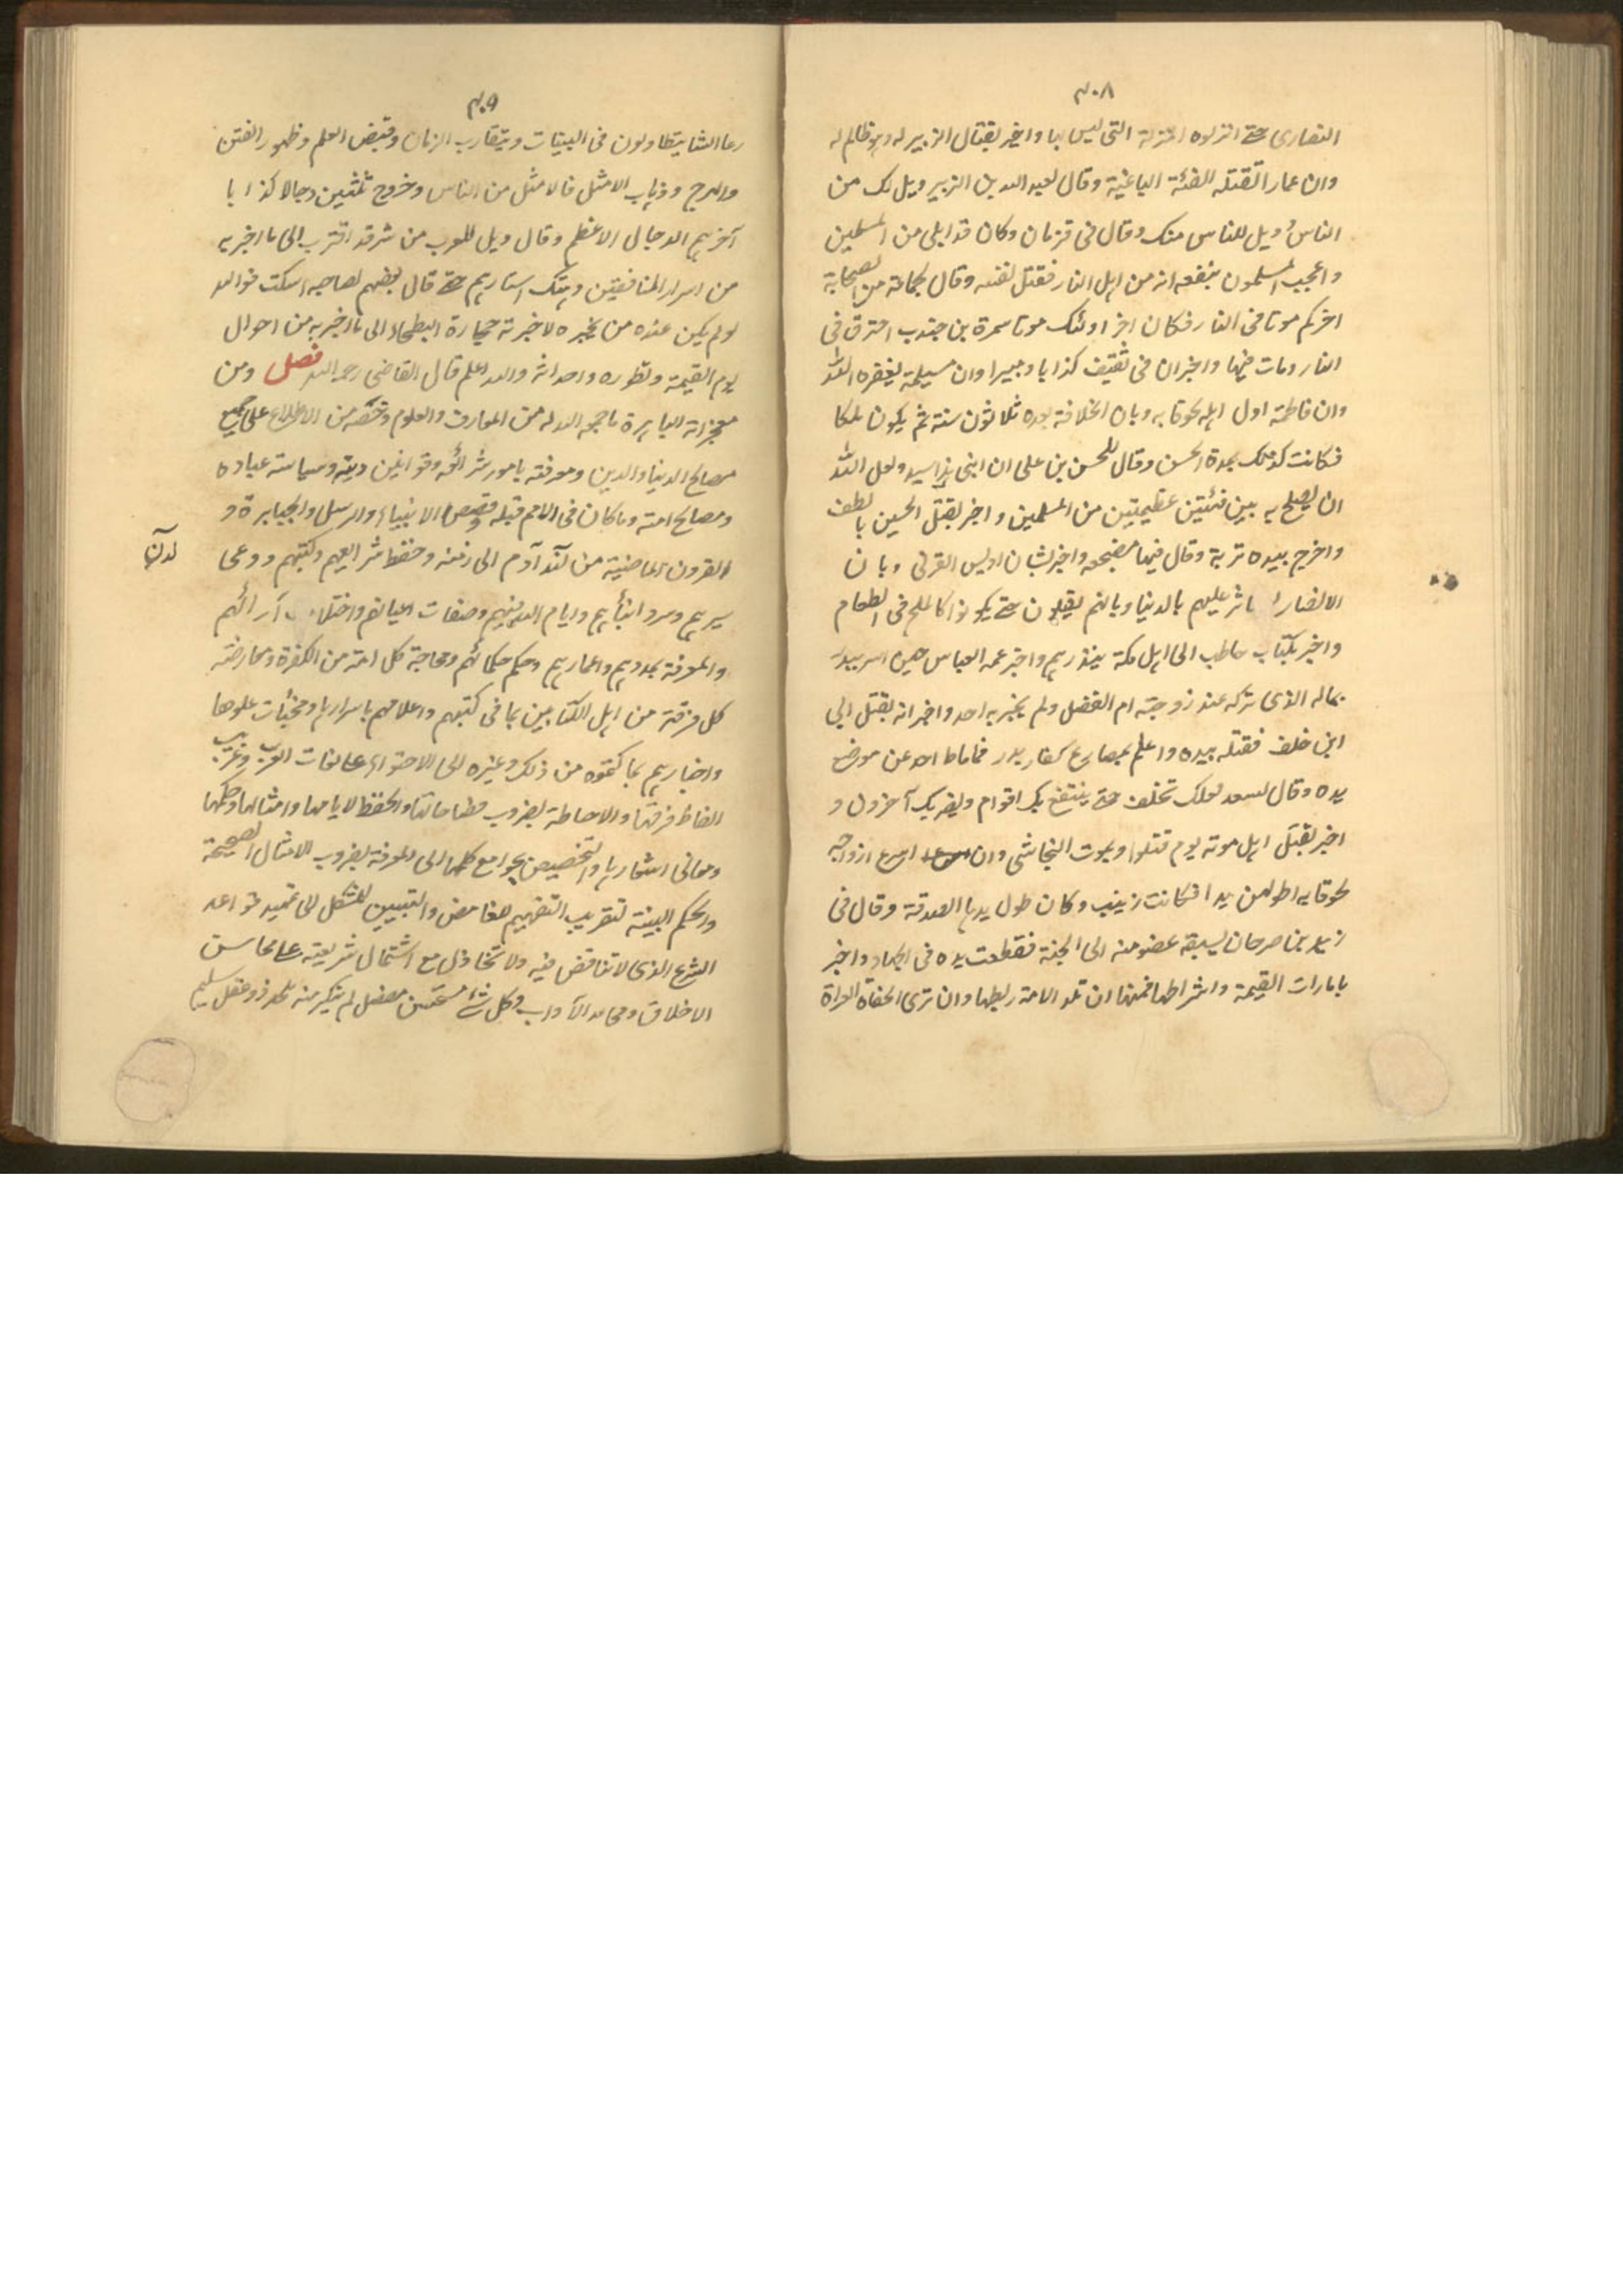 ٣٠٨
النصارى حتى انزلوه المنزلة التى ليس بها واخبر بقتال الزبير له وهو ظالم له
وان عمارا تقتله الفئة الباغية وقال لعبد الله بن الزبير ويل لك من
الناس وويل للناس منك وقال فى قزمان وكان قد ابلى من المسلمين
واعجب المسلمون بنفعه انه من اهل النار فقتل نفسه وقال لجماعة من الصحابة
اخركم موتا فى النار فكان اخر اولئك موتا سمرة بن جندب احترق فى
النار ومات فيها واخبر ان فى ثقيف كذابا ومبيرا وان مسيلمة يعقره الله
وان فاطمة اول اهله لحوقا به وبان الخلافة بعده ثلاثون سنة ثم يكون ملكا
فكانت كذلك بمدة الحسن وقال للحسن بن على ان ابنى هذا سيد ولعل الله
ان يصلح به بين فئتين عظيمتين من المسلمين واخبر بقتل الحسين بالطف
واخرج بيده تربة وقال فيها مضجعه واخبر بشان اويس القرنى وبان
الانصار اثر عليهم بالدنيا وبانهم يقلون حتى يكونوا كالملح فى الطعام
واخبر بكتاب حاطب الى اهل مكة ينذرهم واخبر عمه العباس حين اسر ببدر
بماله الذى تركه عند زوجته ام الفضل ولم يخبر به احد واخبر انه يقتل ابى
ابن خلف فقتله بيده واعلم بمصارع كفار بدر فما ماط احد عن موضع
يده وقال لسعد لعلك تخلف حتى ينتفع بك اقوام ويضر بك آخرون و
اخبر بقتل اهل موته يوم قتلوا وبموت النجاشى وان اسرع ازواجه
لحوقا به اطولهن يدا فكانت زينب وكان طول يدها الصدقة وقال فى
زيد بن صوحان يسبقه عضو منه الى الجنة فقطعت يده فى الجهاد واخبر
بامارات القيمة واشراطها فمنها ان تلد الامة ربها وان ترى الحفاة العراة
٣٠٩
رعا الشا يتطاولون فى البنيات ويتقارب الزمان وقبض العلم وظهور الفتن
والهرج وذهاب الامثل فالامثل من الناس وخروج ثلثين دجالا كذابا
آخرهم الدجال الاعظم وقال ويل للعرب من شر قد اقترب الى ما اخبر به
من اسرار المنافقين وهتك استارهم حتى قال بعضهم لصاحبه اسكت فوالله
لو لم يكن عنده من يخبره لاخبرته حجارة البطحاء الى ما اخبر به من احوال
يوم القيمة وتطوره واحداثه والله اعلم قال القاضى رحمه الله فصل ومن
معجزاته الباهرة ما جمعه الله له من المعارف والعلوم وخصه من الاطلاع على جميع
مصالح الدنيا والدين ومعرفته بامور شرائعه وقوانين دينه وسياسة عباده
ومصالح امته وما كان فى الامم قبله وقصص الانبياء والرسل والجبابرة و
القرون الماضية من لدن آدم الى زمنه وحفظ شرايعهم وكتبهم ووعى
لدن
سيرهم وسرد انبأهم وايام الله فيهم وصفات اعيانهم واختلاف آرائهم
والمعرفة بمددهم واعمارهم وحكم حكمائهم ومحاجة كل امة من الكفرة ومعارضة
كل فرقة من اهل الكتابين بما فى كتبهم واعلامهم باسرارها ومخبأت علومها
واخبارهم بما كتموه من ذلك وغيره الى الاحتواء على لغات العرب وغريب
الفاظ فرقها والاحاطة بضروب فصاحاتها والحفظ لايامها وامثالها وحكمها
ومعانى اشعارها والتخصيص بجوامع كلمها الى المعرفة بضروب الامثال الصحيحة
والحكم البينة لتقريب التفهيم للغامض والتبيين للمشكل الى تمهيد قواعد
الشرع الذى لا تناقض فيه ولا تخاذل مع اشتمال شريعته على محاسن
الاخلاق ومحامد الآداب وكل شئ مستحسن مفضل لم ينكر منه ملحد ذو عقل سليم